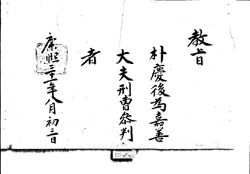 教旨
朴慶後為嘉善
大夫刑曹參判
者
康熙三十一年八月初三日